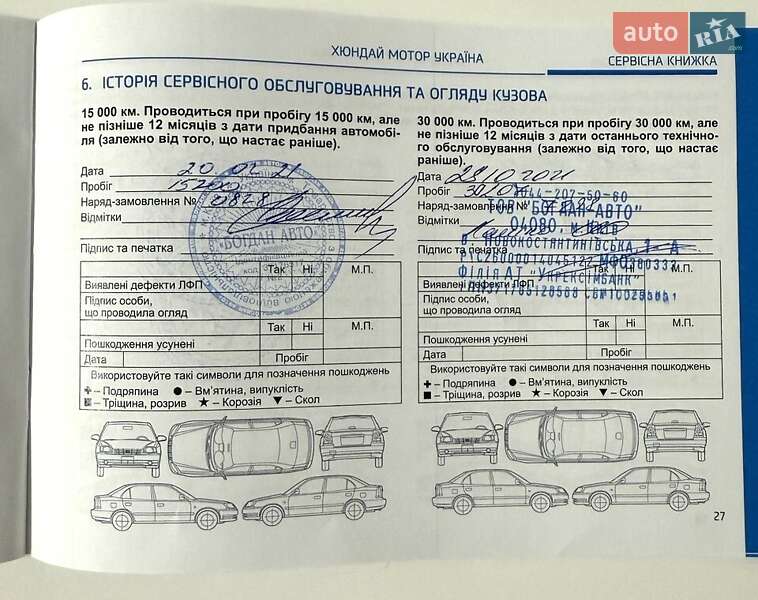 auto RIA.com
ХЮНДАЙ МОТОР УКРАЇНА
СЕРВІСНА КНИЖКА
6. ІСТОРІЯ СЕРВІСНОГО ОБСЛУГОВУВАННЯ ТА ОГЛЯДУ КУЗОВА
15 000 км. Проводиться при пробігу 15 000 км, але
не пізніше 12 місяців з дати придбання автомобі-
ля (залежно від того, що настає раніше).
Дата 20 02 21
Пробіг 15200
Наряд-замовлення № 0828
Відмітки
Підпис та печатка
"БОГДАН АВТО"
Так Ні. М.П.
Виявлені дефекти ЛФП
Підпис особи,
що проводила огляд
Так Ні М.П.
Пошкодження усунені
Дата Пробіг
Використовуйте такі символи для позначення пошкоджень
– Подряпина – Вм'ятина, випуклість
– Тріщина, розрив – Корозія – Скол
30 000 км. Проводиться при пробігу 30 000 км, але
не пізніше 12 місяців з дати останнього технічно-
го обслуговування (залежно від того, що настає
раніше).
Дата 28.10.2021
Пробіг
044-207-50-60
Наряд-замовлення №
ТОВ "БОГДАН-АВТО"
Відмітки
04080, м.
Підпис та
в. НОВОКОСТЯНТИНІВСЬКА, 1-А
МФО
Філія АТ "УКРЕКСІМБАНК"
Так Ні М.П.
Виявлені дефекти ЛФП
Підпис особи,
що проводила огляд
Так Ні М.П.
Пошкодження усунені
Дата Пробіг
Використовуйте такі символи для позначення пошкоджень
– Подряпина – Вм'ятина, випуклість
– Тріщина, розрив – Корозія – Скол
27